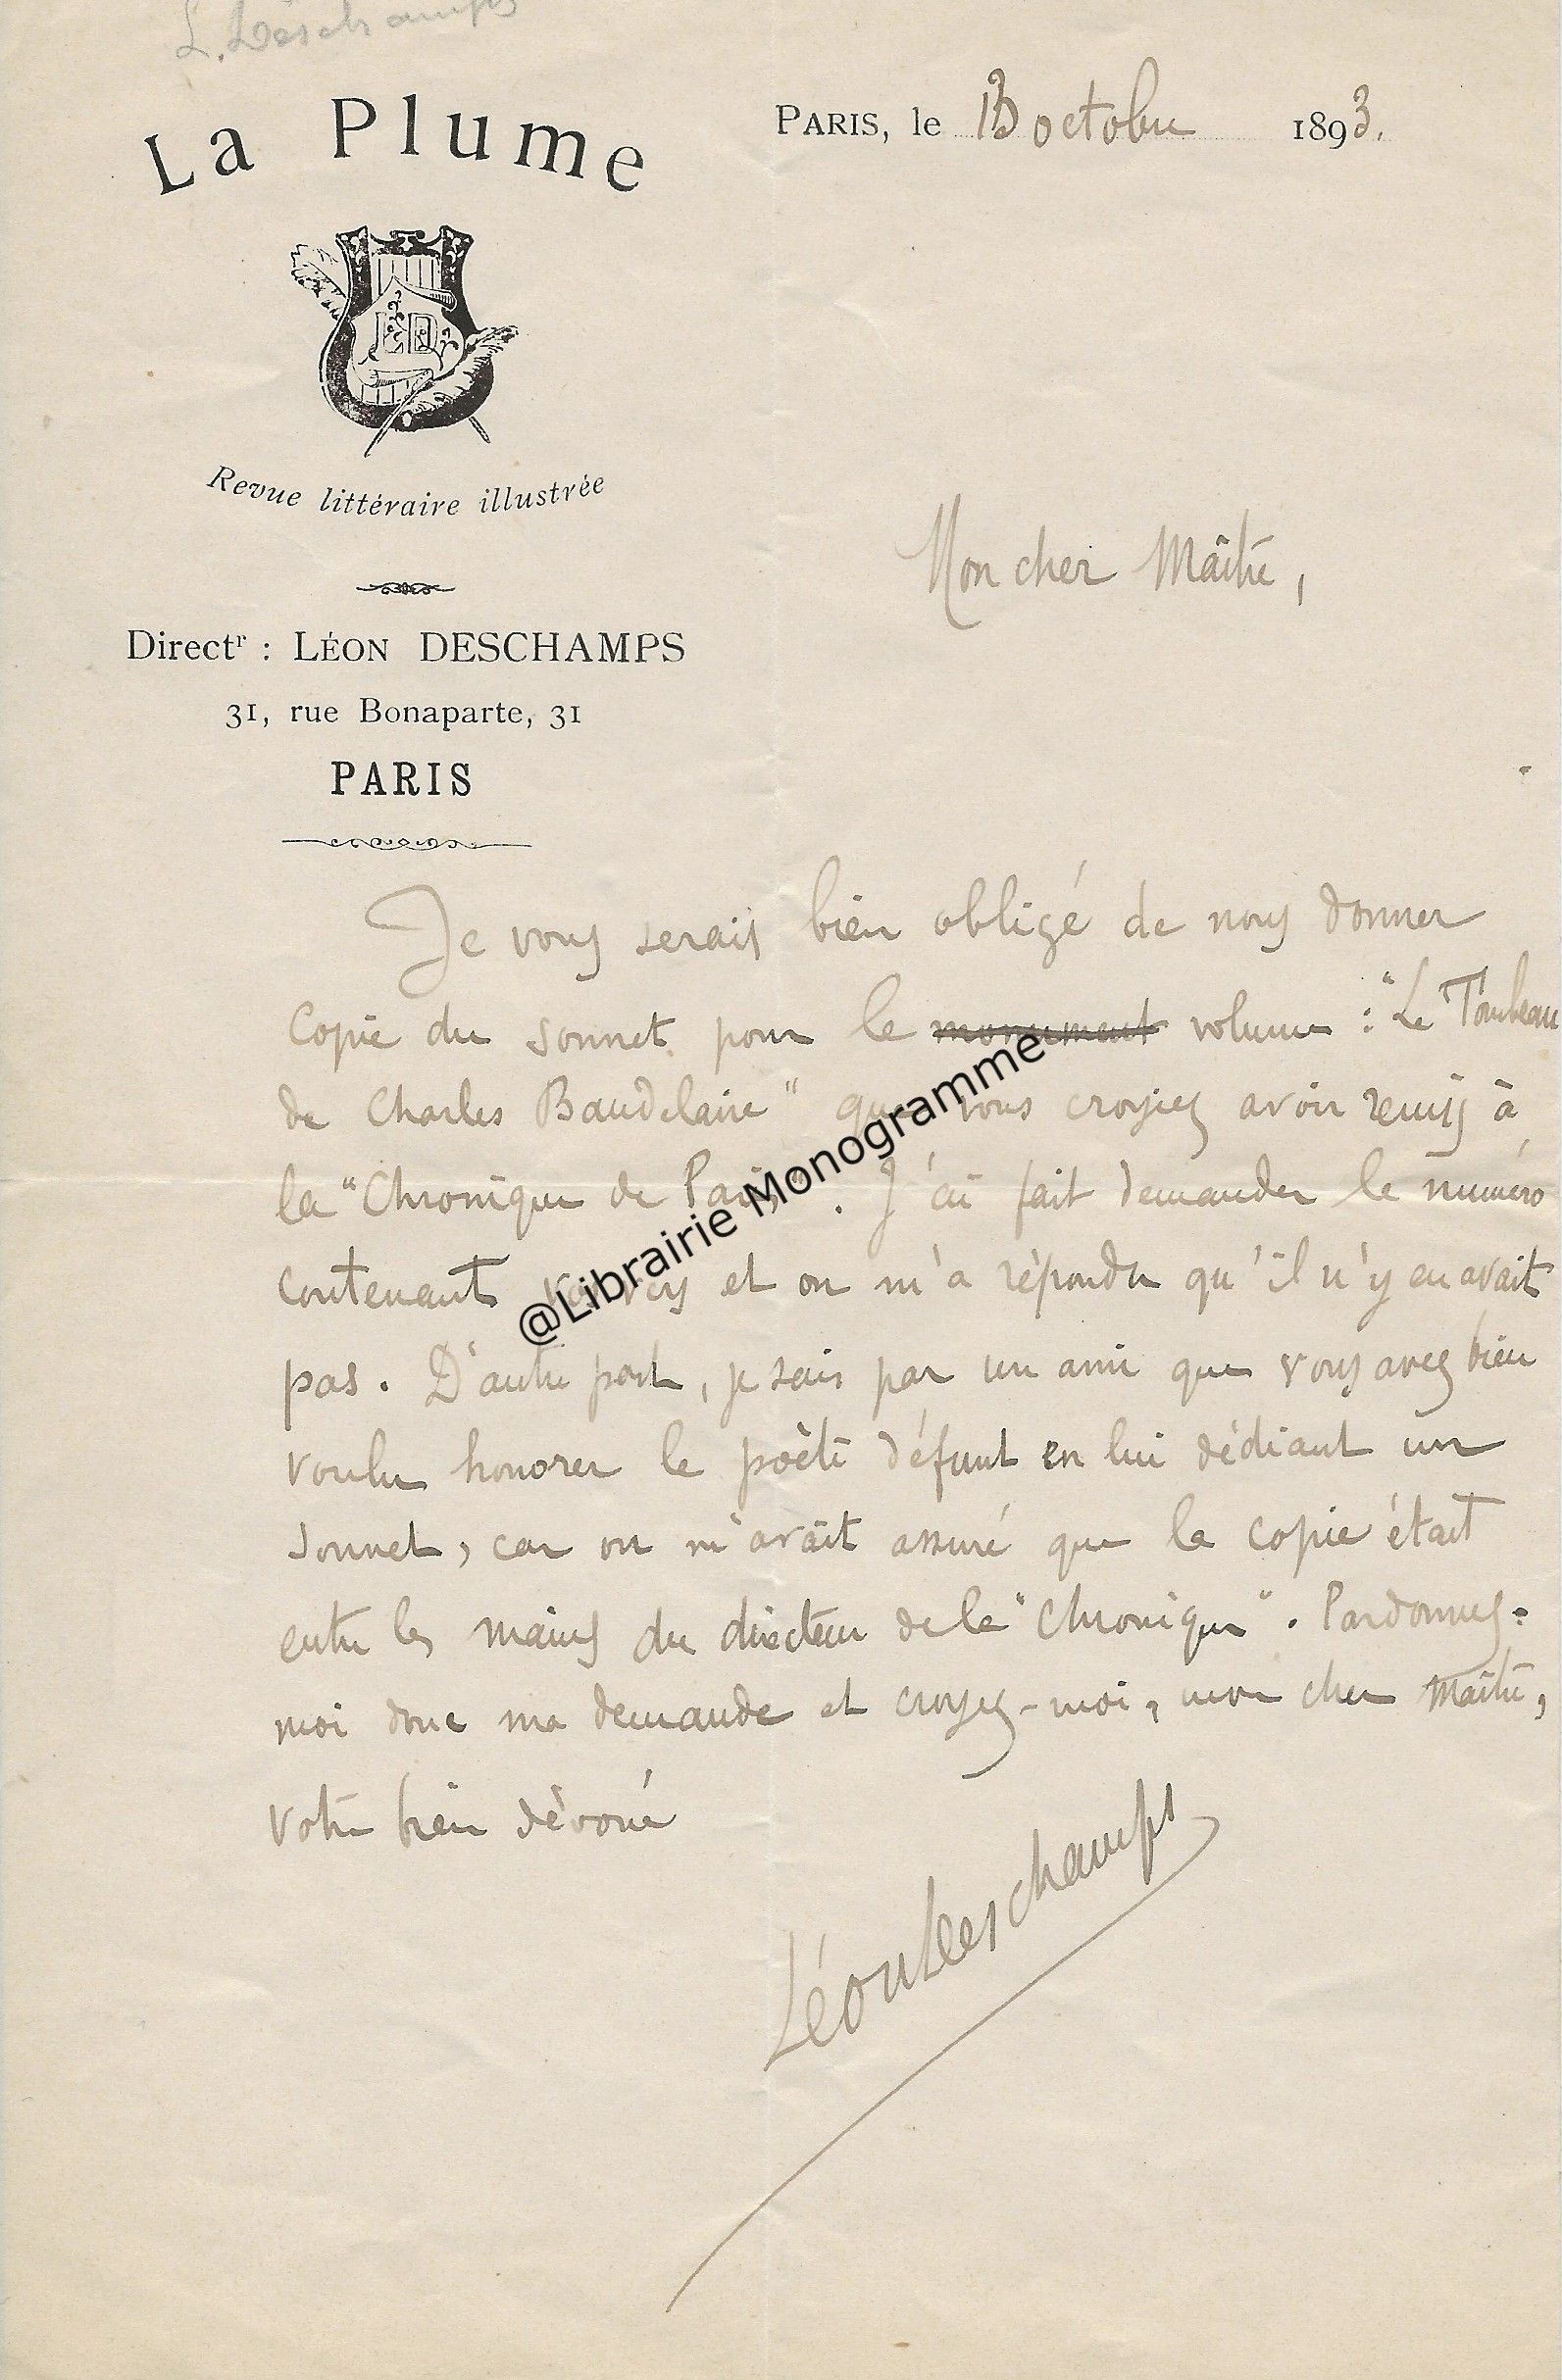 L. Deschamps
La Plume
PARIS, le 13 octobre 1893.
LD
Revue littéraire illustrée
Mon cher Maître,
Directr : LÉON DESCHAMPS
31, rue Bonaparte, 31
PARIS
Je vous serais bien obligé de nous donner
copie du sonnet pour le monument volume : "Le Tombeau
de Charles Baudelaire" que vous croyiez avoir remis à
la "Chronique de Paris". J'ai fait demander le numéro
contenant vos vers et on m'a répondu qu'il n'y en avait
pas. D'autre part, je sais par un ami que vous avez bien
voulu honorer le poète défunt en lui dédiant un
sonnet, car on m'avait assuré que la copie était
entre les mains du directeur de la "Chronique". Pardonnez-
moi donc ma demande et croyez-moi, mon cher Maître,
votre bien dévoué
Léon Deschamps
@Librairie Monogramme